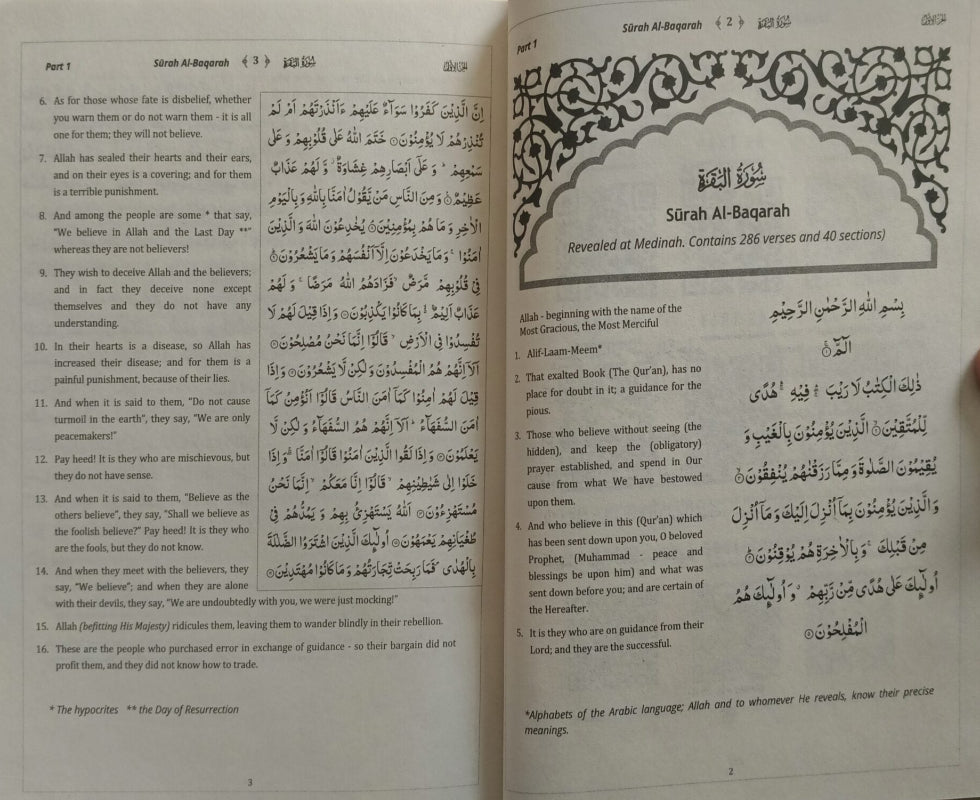 Part 1
Sūrah Al-Baqarah ﴾ 2 ﴿ سُوْرَةُ الْبَقَرَة
سُوْرَةُ الْبَقَرَةِ
Sūrah Al-Baqarah
Revealed at Medinah. Contains 286 verses and 40 sections)
Allah - beginning with the name of the
Most Gracious, the Most Merciful
1. Alif-Laam-Meem*
2. That exalted Book (The Qur'an), has no
place for doubt in it; a guidance for the
pious.
3. Those who believe without seeing (the
hidden), and keep the (obligatory)
prayer established, and spend in Our
cause from what We have bestowed
upon them.
4. And who believe in this (Qur'an) which
has been sent down upon you, O beloved
Prophet, (Muhammad - peace and
blessings be upon him) and what was
sent down before you; and are certain of
the Hereafter.
5. It is they who are on guidance from their
Lord; and they are the successful.
بِسْمِ اللّٰهِ الرَّحْمٰنِ الرَّحِيْمِ
الٓمّٓ ۚ
ذٰلِكَ الْكِتٰبُ لَا رَيْبَ ۛ فِيْهِ ۛ هُدًى
لِّلْمُتَّقِيْنَ ۙ الَّذِيْنَ يُؤْمِنُوْنَ بِالْغَيْبِ وَ
يُقِيْمُوْنَ الصَّلٰوةَ وَمِمَّا رَزَقْنٰهُمْ يُنْفِقُوْنَ ۙ
وَالَّذِيْنَ يُؤْمِنُوْنَ بِمَاۤ اُنْزِلَ اِلَيْكَ وَمَاۤ اُنْزِلَ
مِنْ قَبْلِكَ ۚ وَبِالْاٰخِرَةِ هُمْ يُوْقِنُوْنَ ؕ
اُولٰٓئِكَ عَلٰى هُدًى مِّنْ رَّبِّهِمْ ۙ وَاُولٰٓئِكَ هُمُ
الْمُفْلِحُوْنَ ۝
*Alphabets of the Arabic language; Allah and to whomever He reveals, know their precise
meanings.
2
Part 1 Sūrah Al-Baqarah ﴾ 3 ﴿ سُوْرَةُ الْبَقَرَة
6. As for those whose fate is disbelief, whether
you warn them or do not warn them - it is all
one for them; they will not believe.
7. Allah has sealed their hearts and their ears,
and on their eyes is a covering; and for them
is a terrible punishment.
8. And among the people are some * that say,
"We believe in Allah and the Last Day **"
whereas they are not believers!
9. They wish to deceive Allah and the believers;
and in fact they deceive none except
themselves and they do not have any
understanding.
10. In their hearts is a disease, so Allah has
increased their disease; and for them is a
painful punishment, because of their lies.
11. And when it is said to them, "Do not cause
turmoil in the earth", they say, "We are only
peacemakers!"
12. Pay heed! It is they who are mischievous, but
they do not have sense.
13. And when it is said to them, "Believe as the
others believe", they say, "Shall we believe as
the foolish believe?" Pay heed! It is they who
are the fools, but they do not know.
14. And when they meet with the believers, they
say, "We believe"; and when they are alone
with their devils, they say, "We are undoubtedly with you, we were just mocking!"
15. Allah (befitting His Majesty) ridicules them, leaving them to wander blindly in their rebellion.
16. These are the people who purchased error in exchange of guidance - so their bargain did not
profit them, and they did not know how to trade.
اِنَّ الَّذِيْنَ كَفَرُوْا سَوَآءٌ عَلَيْهِمْ ءَاَنْذَرْتَهُمْ اَمْ لَمْ
تُنْذِرْهُمْ لَا يُؤْمِنُوْنَ ۝ خَتَمَ اللّٰهُ عَلٰى قُلُوْبِهِمْ وَ عَلٰى
سَمْعِهِمْ ؕ وَ عَلٰۤى اَبْصَارِهِمْ غِشَاوَةٌ ؗ وَّ لَهُمْ عَذَابٌ
عَظِيْمٌ ۠ وَ مِنَ النَّاسِ مَنْ يَّقُوْلُ اٰمَنَّا بِاللّٰهِ وَ بِالْيَوْمِ
الْاٰخِرِ وَ مَا هُمْ بِمُؤْمِنِيْنَ ۘ يُخٰدِعُوْنَ اللّٰهَ وَ الَّذِيْنَ
اٰمَنُوْا ۚ وَمَا يَخْدَعُوْنَ اِلَّاۤ اَنْفُسَهُمْ وَ مَا يَشْعُرُوْنَ ؕ
فِيْ قُلُوْبِهِمْ مَّرَضٌ ۙ فَزَادَهُمُ اللّٰهُ مَرَضًا ۚ وَ لَهُمْ
عَذَابٌ اَلِيْمٌۢ ۙ۬ بِمَا كَانُوْا يَكْذِبُوْنَ ۝ وَ اِذَا قِيْلَ لَهُمْ لَا
تُفْسِدُوْا فِي الْاَرْضِ ۙ قَالُوْۤا اِنَّمَا نَحْنُ مُصْلِحُوْنَ ۝
اَلَاۤ اِنَّهُمْ هُمُ الْمُفْسِدُوْنَ وَ لٰكِنْ لَّا يَشْعُرُوْنَ ۝ وَ اِذَا
قِيْلَ لَهُمْ اٰمِنُوْا كَمَاۤ اٰمَنَ النَّاسُ قَالُوْۤا اَنُؤْمِنُ كَمَاۤ
اٰمَنَ السُّفَهَآءُ ؕ اَلَاۤ اِنَّهُمْ هُمُ السُّفَهَآءُ وَ لٰكِنْ لَّا
يَعْلَمُوْنَ ۝ وَ اِذَا لَقُوا الَّذِيْنَ اٰمَنُوْا قَالُوْۤا اٰمَنَّا ۖۚ وَ اِذَا
خَلَوْا اِلٰى شَيٰطِيْنِهِمْ ۙ قَالُوْۤا اِنَّا مَعَكُمْ ۙ اِنَّمَا نَحْنُ
مُسْتَهْزِءُوْنَ ۝ اَللّٰهُ يَسْتَهْزِئُ بِهِمْ وَ يَمُدُّهُمْ فِيْ
طُغْيَانِهِمْ يَعْمَهُوْنَ ۝ اُولٰٓئِكَ الَّذِيْنَ اشْتَرَوُا الضَّلٰلَةَ
بِالْهُدٰى ۪ فَمَا رَبِحَتْ تِّجَارَتُهُمْ وَ مَا كَانُوْا مُهْتَدِيْنَ ۝
* The hypocrites ** the Day of Resurrection
3